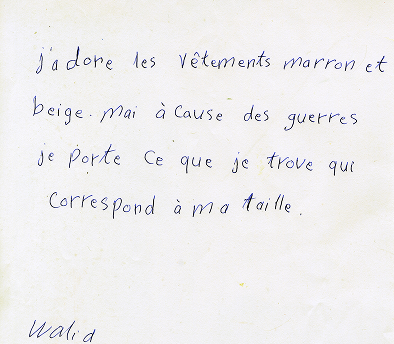 j'adore les vêtements marron et
beige. mai à cause des guerres
je porte ce que je trove qui
correspond à ma taille.
Walid